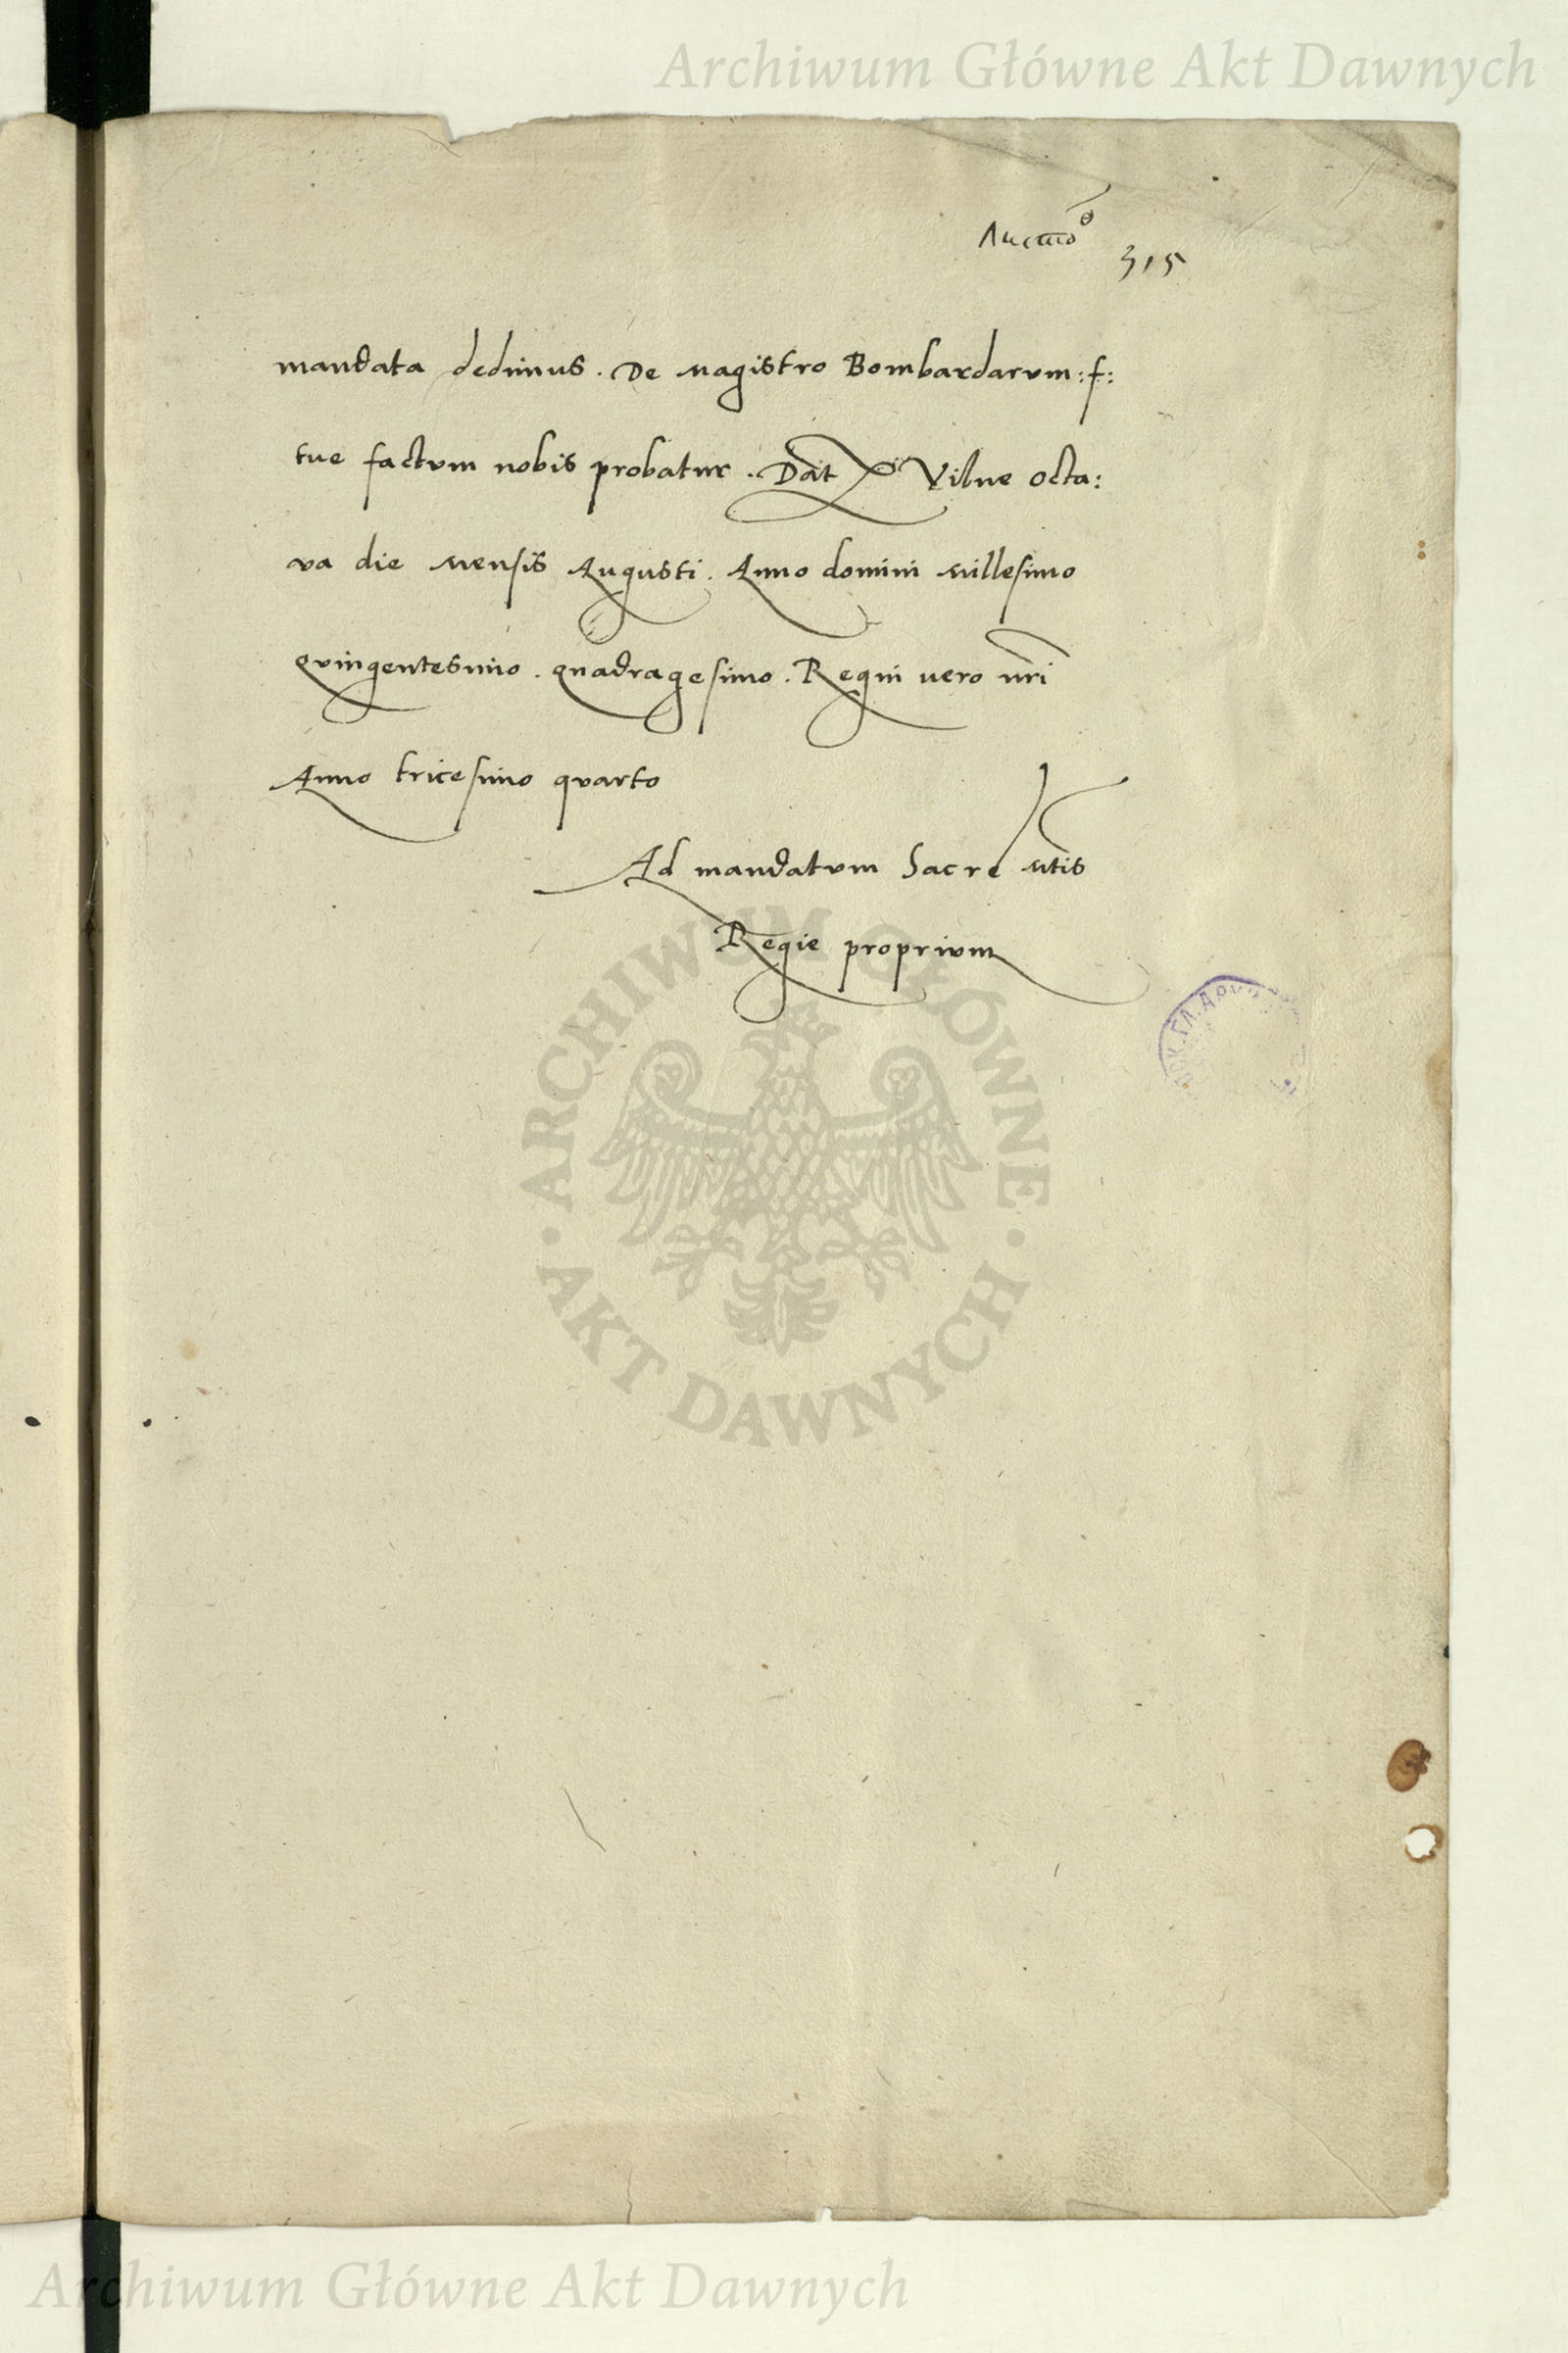 Archiwum Główne Akt Dawnych
315
mandata dedimus . De magistro Bombardarum :f:
tue factum nobis probatur . Dat Vilne octa:
va die mensis Augusti . Anno domini millesimo
quingentesimo . quadragesimo . Regni vero nri
Anno tricesimo quarto
Ad mandatum Sacre Mtis
Regie proprium
ARCHIWUM GŁÓWNE
AKT DAWNYCH
Archiwum Główne Akt Dawnych